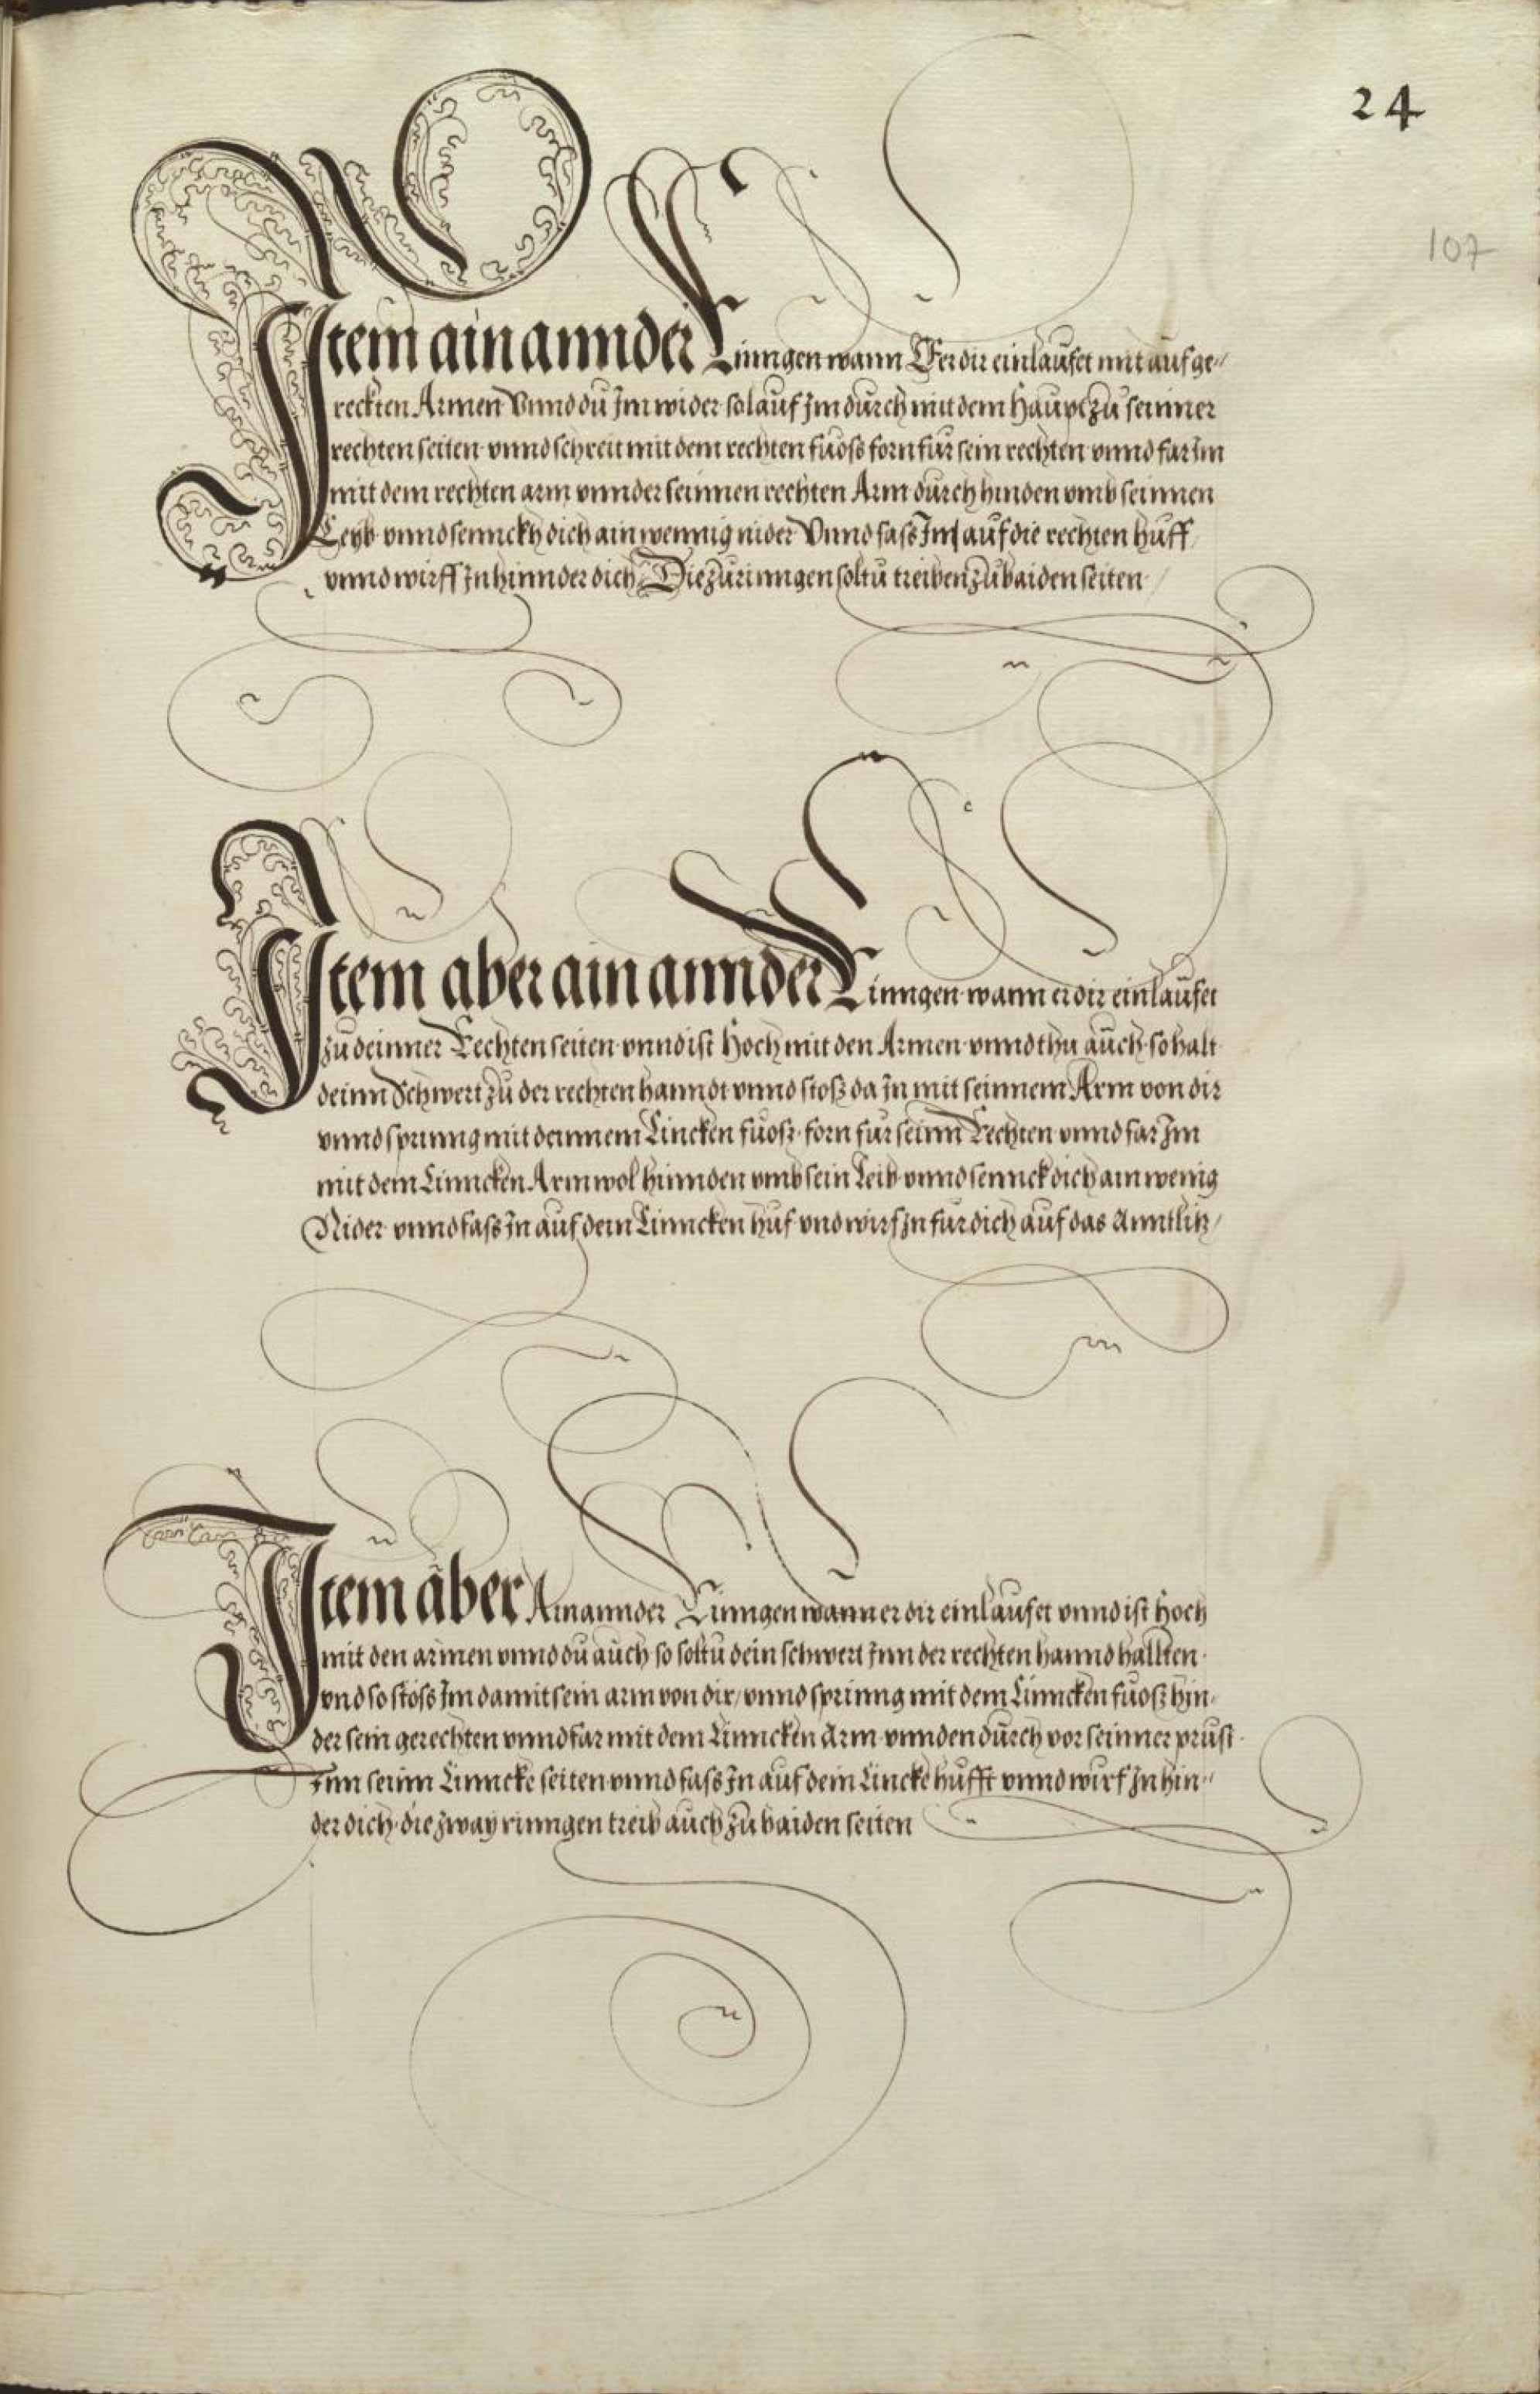 24
107
Item ain annder Rinngen wann Er dir einlaufet mit auf ge〃
reckten Armen Vnnd du Im wider so lauf Im durch mit dem Haupt zu seinner
rechten seiten vnnd schreit mit dem rechten fuoss forn fur sein rechten vnnd far Im
mit dem rechten arm vnnder seinnen rechten Arm durch hinden vmb seinnen
Leyb vnnd sennckh dich ain wennig nider Vnnd fass Im auf die rechten huff
vnnd wirff In hinnder dich Die zu rinngen soltu treiben zu baiden seiten
Item aber ain annder Rinngen wann er dir einlaufet
zu deinner Rechten seiten vnnd ist Hoch mit den Armen vnnd thu auch so halt
deinn Schwert zu der rechten hanndt vnnd stoß da In mit seinnem Arm von dir
vnnd sprinng mit deinnem Lincken fuoss forn fur seinn Rechten vnnd far Im
mit dem Linncken Arm wol hinnden vmb sein Leib vnnd sennck dich ain wenig
Nider vnnd fass In auf dein Linncken huf vnd wirf In fur dich auf das Anntlitz
Item aber Ain annder Rinngen wann er dir einlaufet vnnd ist Hoch
mit den armen vnnd du auch so soltu dein schwert Inn der rechten hannd hallten
vnd so stoss Im damit sein arm von dir vnnd sprinng mit dem Linncken fuoß hin〃
der sein gerechten vnnd far mit dem Linncken Arm vnnden durch vor seinner prust
Inn seinn Linncke seiten vnnd fass In auf dein Lincke hufft vnnd wirf In hin〃
der dich die zway rinngen treib auch zu baiden seiten